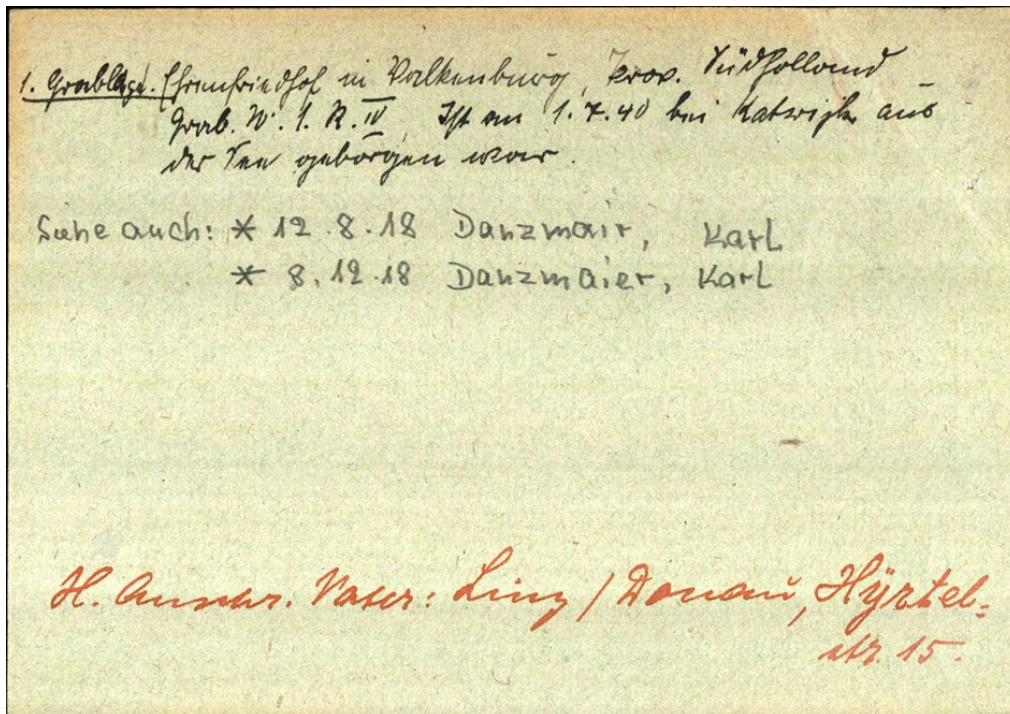 1. Grablage. Ehrenfriedhof in Valkenburg, Prov. Südholland
Grab. N. 1. R. IV Ist am 1.7.40 bei Katwijk aus
der See geborgen wor.
Siehe auch: * 12.8.18 Danzmair, Karl
* 8.12.18 Danzmaier, Karl
H. Anschr. Vater: Linz / Donau, Hyrtel=
str. 15.